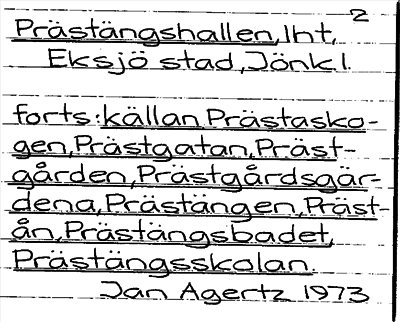 2
Prästängshallen, Int,
Eksjö stad, Jönk l.
forts: källan, Prästasko-
gen, Prästgatan, Präst-
gården, Prästgårdsgär-
dena, Prästängen, Präst-
ån, Prästängsbadet,
Prästängsskolan.
Jan Agertz 1973